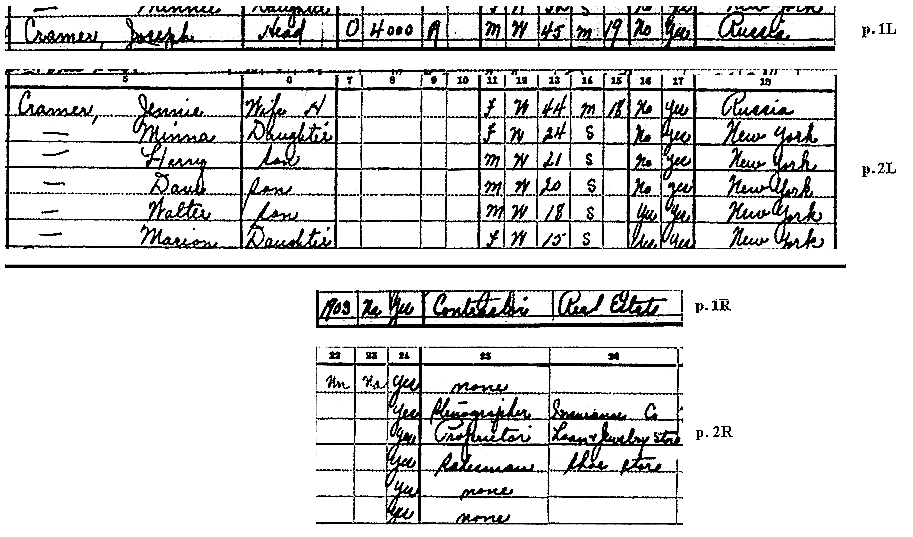 Minnie Daughter F W No Yes New York
Cramer, Joseph Head O 4000 R M W 45 M 19 No Yes Russia p.1L
5 6 7 8 9 10 11 12 13 14 15 16 17 18
Cramer, Jennie Wife H F W 44 M 18 No Yes Russia
— Minna Daughter F W 24 S No Yes New York
— Harry Son M W 21 S No Yes New York
— Dave Son M W 20 S No Yes New York p.2L
— Walter Son M W 18 S Yes Yes New York
— Marion Daughter F W 15 S Yes Yes New York
1903 Na Yes Contractor Real Estate p.1R
22 23 24 25 26
Na Yes none
Yes Stenographer Insurance Co
Yes Proprietor Loan & Jewelry Store p.2R
Yes Salesman Shoe Store
Yes none
Yes none